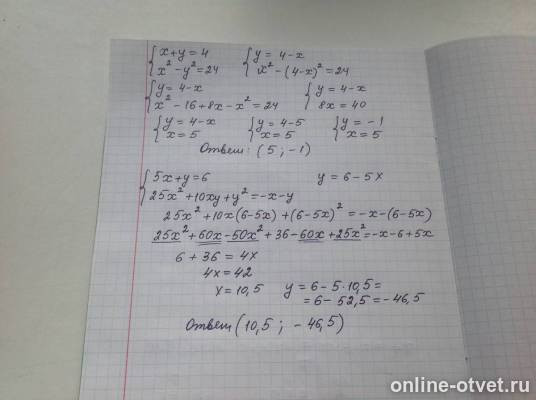 {x+y=4 {y=4-x
x²-y²=24 x²-(4-x)²=24
{y=4-x {y=4-x
x²-16+8x-x²=24 8x=40
{y=4-x {y=4-5 {y=-1
x=5 x=5 x=5
Ответ: (5; -1)
{5x+y=6 y=6-5x
25x²+10xy+y²=-x-y
25x²+10x(6-5x)+(6-5x)²=-x-(6-5x)
25x²+60x-50x²+36-60x+25x²=-x-6+5x
6+36=4x
4x=42
x=10,5 y=6-5·10,5=
=6-52,5=-46,5
Ответ (10,5; -46,5)
online-otvet.ru